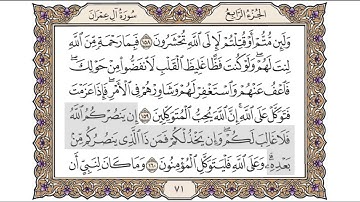 الجزء الرابع
سورة آل عمران
وَلَئِن مُّتُّمْ أَوْ قُتِلْتُمْ لَإِلَى ٱللَّهِ تُحْشَرُونَ ١٥٨ فَبِمَا رَحْمَةٍ مِّنَ ٱللَّهِ
لِنتَ لَهُمْ ۖ وَلَوْ كُنتَ فَظًّا غَلِيظَ ٱلْقَلْبِ لَٱنفَضُّوا۟ مِنْ حَوْلِكَ ۖ
فَٱعْفُ عَنْهُمْ وَٱسْتَغْفِرْ لَهُمْ وَشَاوِرْهُمْ فِى ٱلْأَمْرِ ۖ فَإِذَا عَزَمْتَ
فَتَوَكَّلْ عَلَى ٱللَّهِ ۚ إِنَّ ٱللَّهَ يُحِبُّ ٱلْمُتَوَكِّلِينَ ١٥٩ إِن يَنصُرْكُمُ ٱللَّهُ
فَلَا غَالِبَ لَكُمْ ۖ وَإِن يَخْذُلْكُمْ فَمَن ذَا ٱلَّذِى يَنصُرُكُم مِّنۢ
بَعْدِهِۦ ۗ وَعَلَى ٱللَّهِ فَلْيَتَوَكَّلِ ٱلْمُؤْمِنُونَ ١٦٠ وَمَا كَانَ لِنَبِىٍّ أَن
٧١